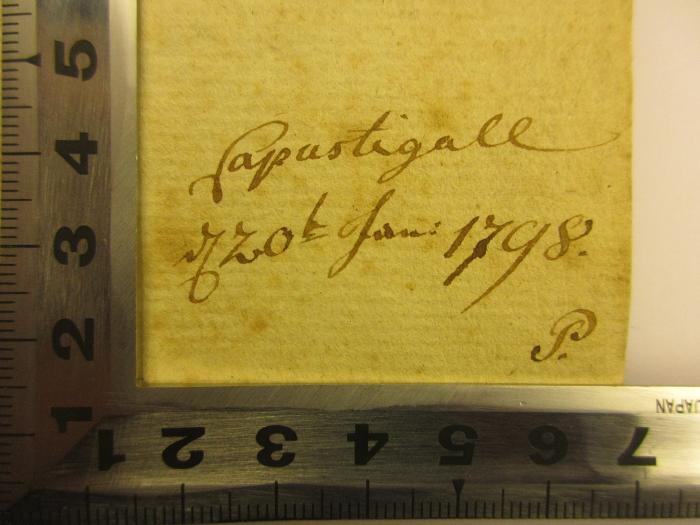 Papustigall
d 20t Jan: 1798.
P.
5
4
3
2
1
1 2 3 4 5 6 7
JAPAN